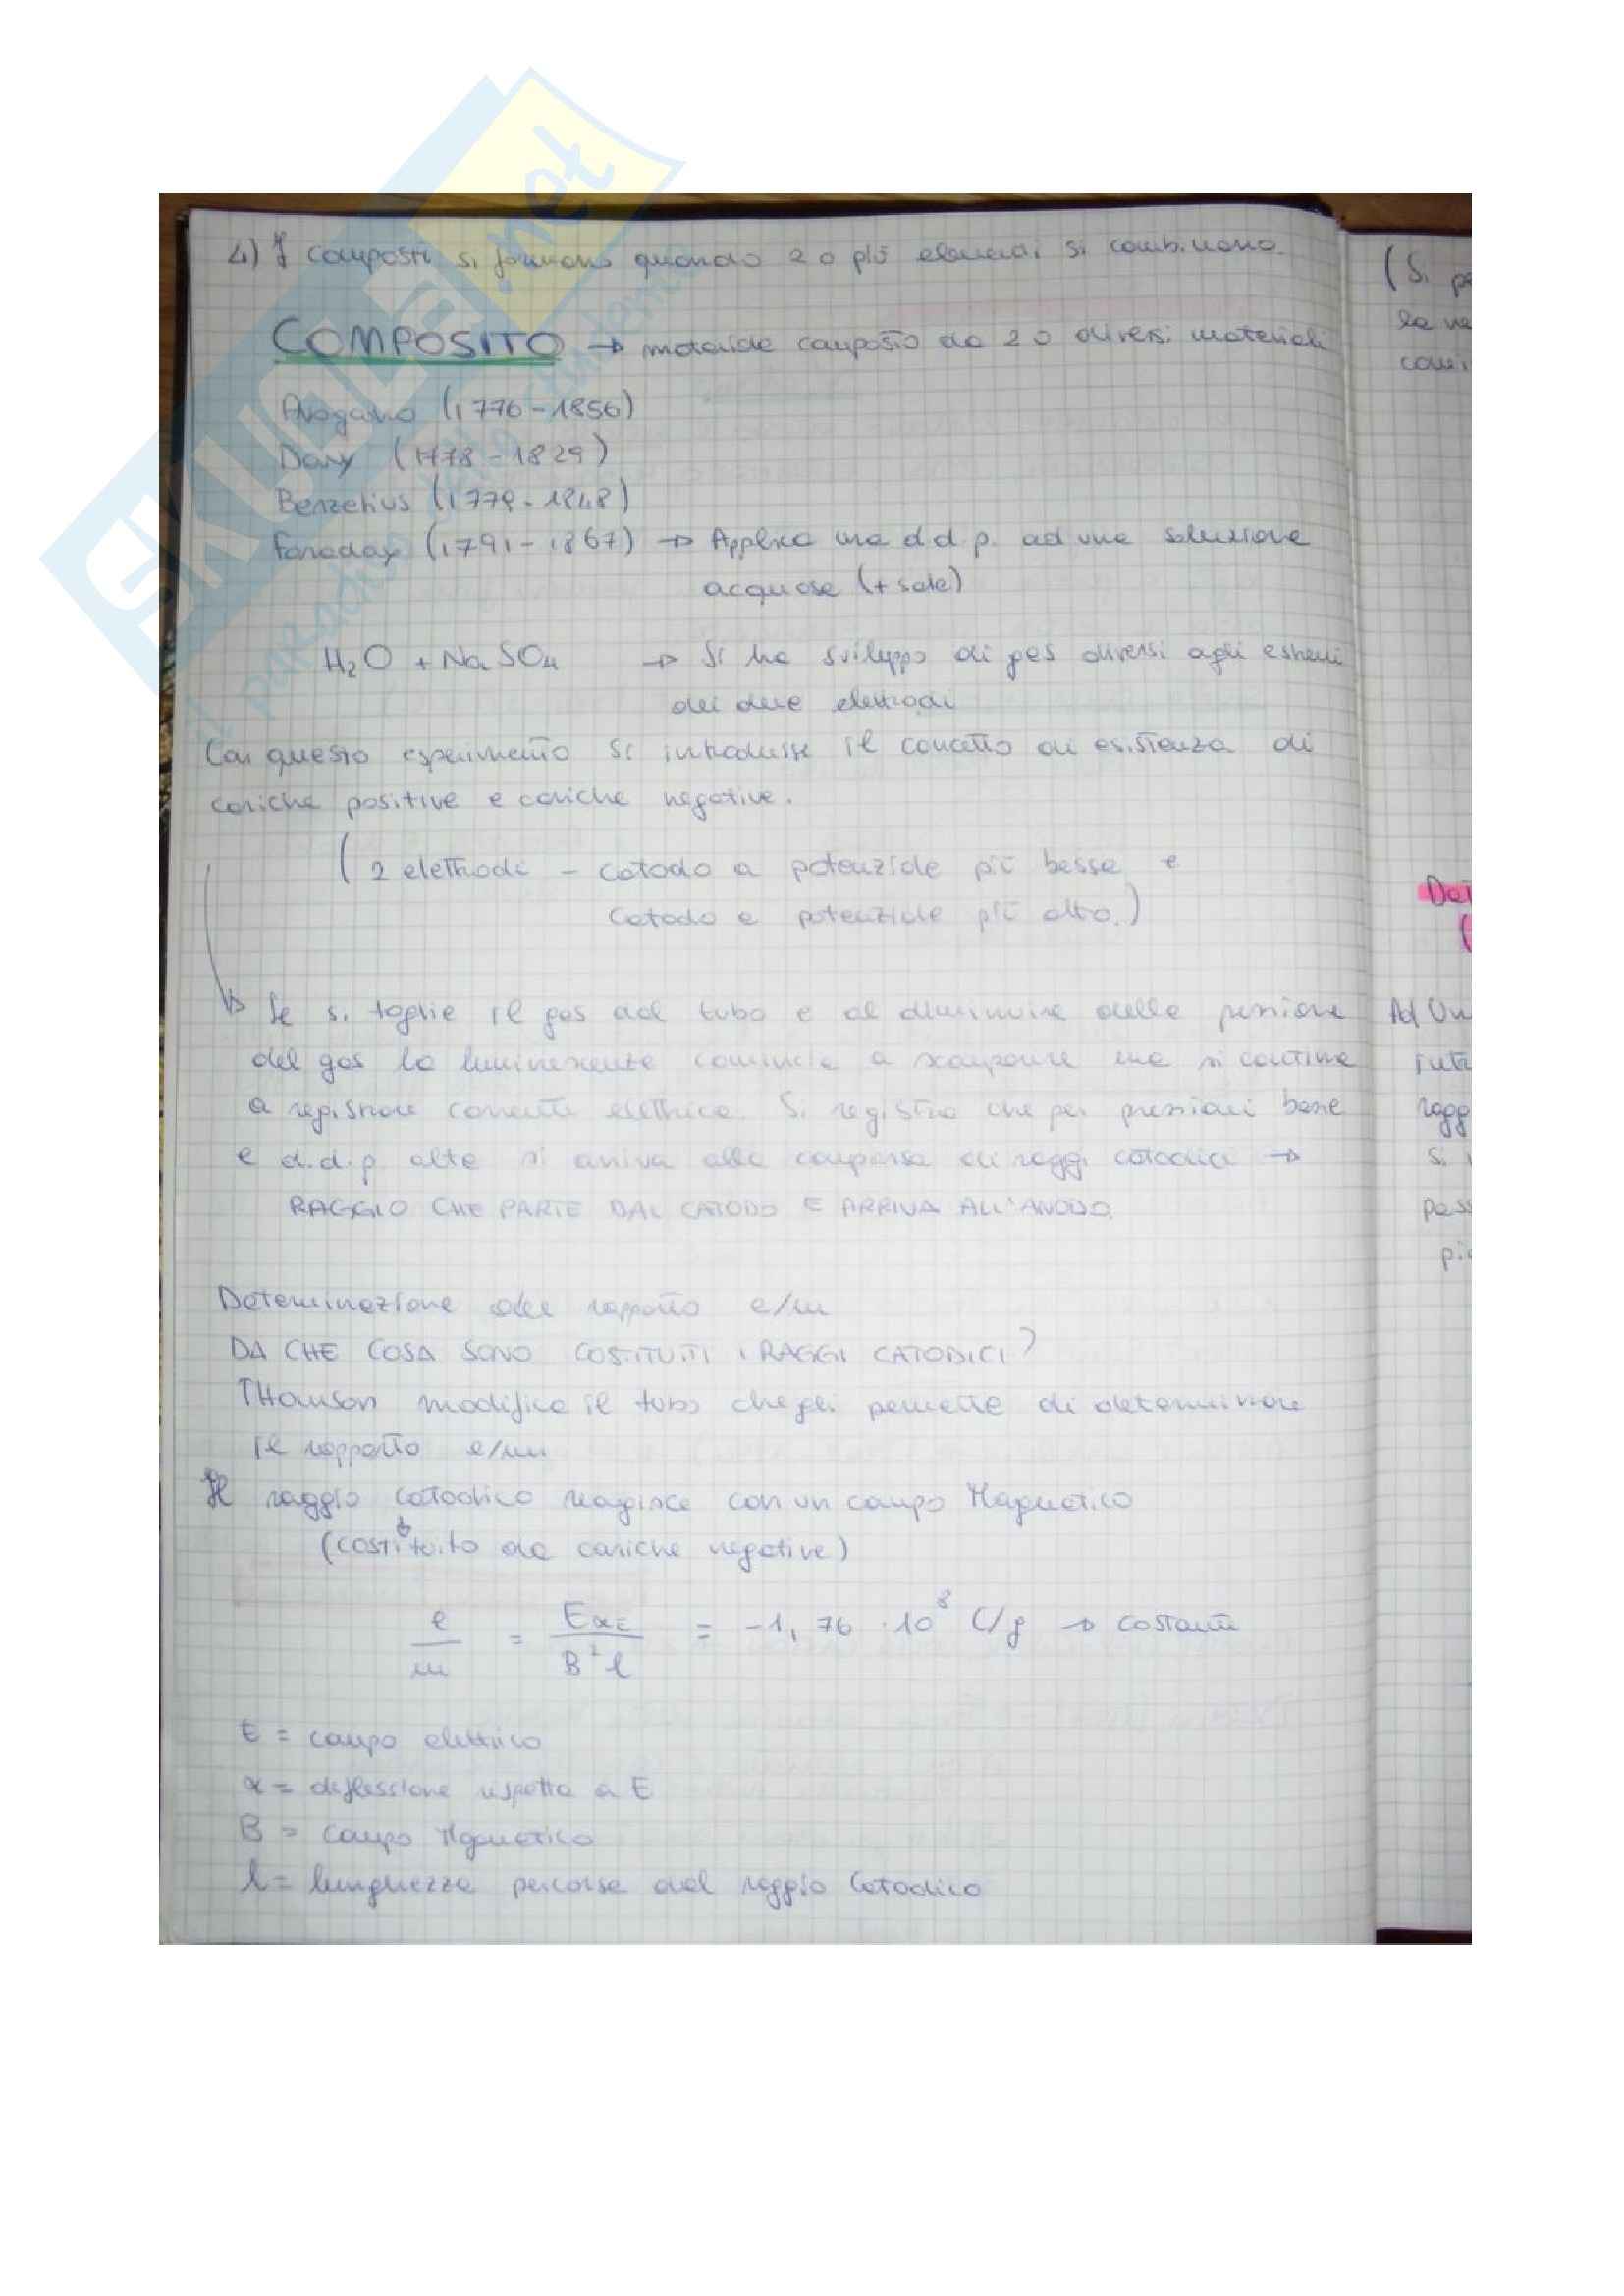 4) I composti si formano quando 2 o più elementi si combinano.
COMPOSITO → materiale composto da 2 o diversi materiali
Avogadro (1776-1856)
Davy (1778-1829)
Berzelius (1779-1848)
Faraday (1791-1867) → Applica una d.d.p. ad una soluzione
acquosa (+ sale)
H₂O + Na SO₄ → Si ha sviluppo di gas diversi agli estremi
dei due elettrodi
Con questo esperimento si introdusse il concetto di esistenza di
cariche positive e cariche negative.
( 2 elettrodi - catodo a potenziale più basso e
catodo a potenziale più alto.)
↳ Se si toglie il gas dal tubo e al diminuire della pressione
del gas la luminescente comincia a scomparire ma si continua
a registrare corrente elettrica. Si registra che per pressioni basse
e d.d.p alte si arriva alla comparsa di raggi catodici →
RAGGIO CHE PARTE DAL CATODO E ARRIVA ALL'ANODO.
Determinazione del rapporto e/m
DA CHE COSA SONO COSTITUITI I RAGGI CATODICI?
THomson modifica il tubo che gli permette di determinare
il rapporto e/m
Il raggio catodico reagisce con un campo Magnetico
(costituito da cariche negative)
e/m = Eα_E / B² l = -1,76 · 10⁸ C/g → costante
E = campo elettrico
α = deflessione rispetto a E
B = campo Mgnetico
l = lunghezza percorsa dal raggio Catodico
(Si
la
Ad Un
si
pass
SKUOLA.net
il paradiso dello studente